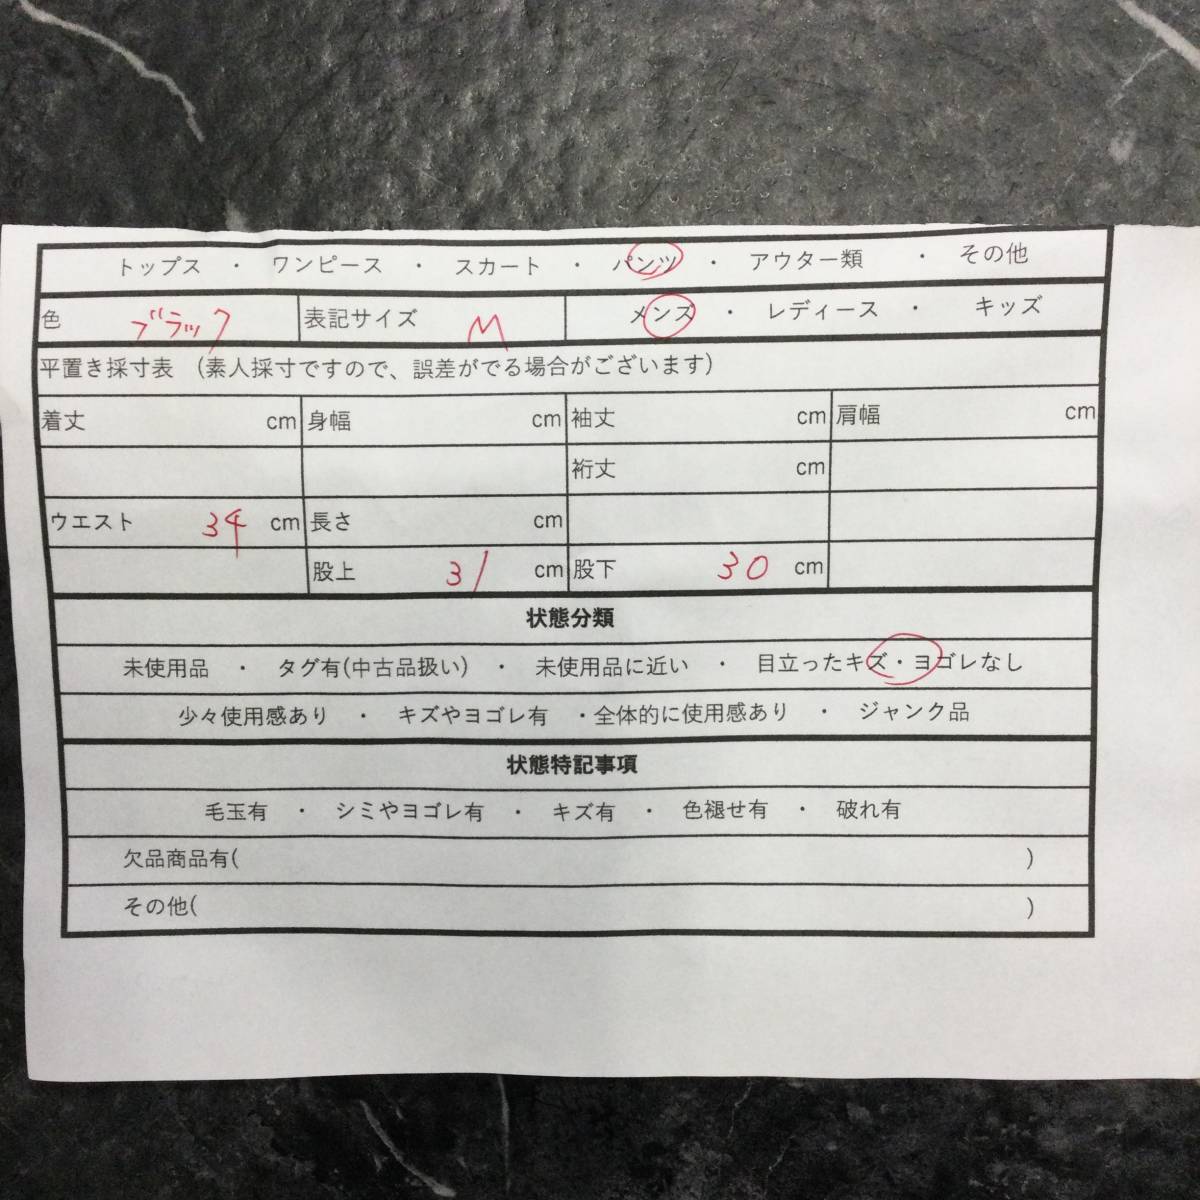 トップス ・ ワンピース ・ スカート ・ パンツ ・ アウター類 ・ その他
色 ブラック 表記サイズ M メンズ ・ レディース ・ キッズ
平置き採寸表 (素人採寸ですので、誤差がでる場合がございます)
着丈 cm 身幅 cm 袖丈 cm 肩幅 cm
裄丈 cm
ウエスト 34 cm 長さ cm
股上 31 cm 股下 30 cm
状態分類
未使用品 ・ タグ有(中古品扱い) ・ 未使用品に近い ・ 目立ったキズ・ヨゴレなし
少々使用感あり ・ キズやヨゴレ有 ・全体的に使用感あり ・ ジャンク品
状態特記事項
毛玉有 ・ シミやヨゴレ有 ・ キズ有 ・ 色褪せ有 ・ 破れ有
欠品商品有( )
その他( )